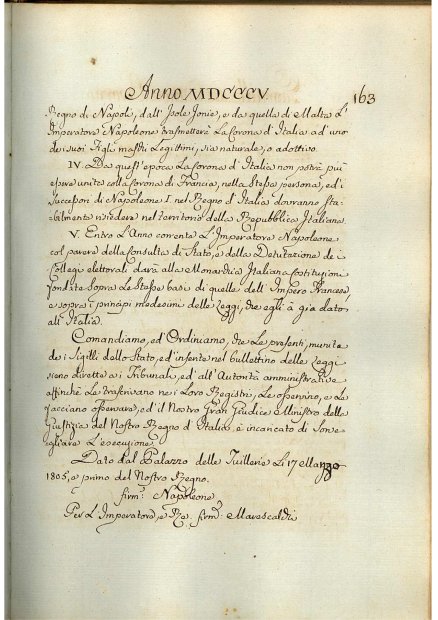 Anno MDCCCV.
163
Regno di Napoli, dall' Isole Jonie, e da quella di Malta L'
Imperatore Napoleone trasmetterà La Corona d'Italia ad' uno
de i suoi Figli maschi Legittimi, sia naturale, o adottivo.
IV. Da quest' epoca La Corona d' Italia non potrà più
essere unita colla Corona di Francia, nella stessa persona, ed i
successori di Napoleone I. nel Regno d' Italia dovranno sta-
bilmente risedere nel territorio della Repubblica Italiana.
V. Entro L'Anno corrente L' Imperatore Napoleone
col parere della Consulta di Stato, e della Deputazione de i
Collegi elettorali darà alla Monarchia Italiana Costituzioni
fondate sopra Le Stesse basi di quelle dell' Impero Francese,
e sopra i principi medesimi delle Leggi, che egli à già dato
all' Italia.
Comandiamo, ed' Ordiniamo, che Le presenti, munite
de i Sigilli dello Stato, ed' inserite nel bullettino delle Leggi
sieno dirette a i Tribunali, ed' all' Autorità amministrative
affinchè Le trascrivano ne i Loro Registri, Le osservino, e Le
facciano osservare, ed' il Nostro Gran Giudice e Ministro della
Giustizia del Nostro Regno d' Italia è incaricato di Sorve-
gliare L' esecuzione.
Dato dal Palazzo delle Tuillerie Li 17 Marzo
1805, e primo del Nostro Regno.
firm: Napoleone
Per L' Imperatore, e Re. firm: Marescalchi